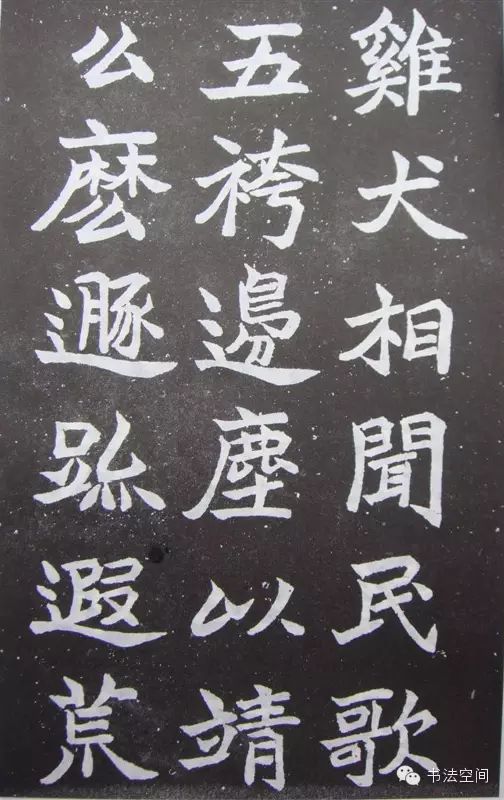 雞犬相聞民歌
五袴邊塵以靖
么麽遯跡遐荒
书法空间